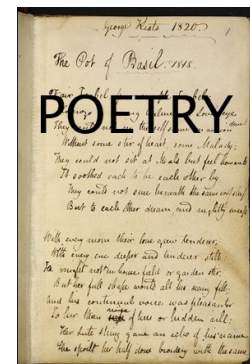 George Keats 1820.
The Pot of Basil. 1818.
POETRY
They
Without some stir of heart, some Malady;
They could not sit at Meals but feel how well
It soothed each to be each other by
They could not sure beneath the same roof sleep
But to each other dream and nightly weep
With every morn their love grew tenderer,
With every eve deeper and tenderer still
He might not in house field or garden stir,
But her full shape would all his seeing fill:
And his continual voice was pleasanter
To her than noise of trees or hidden rill:
Her lute string gave an echo of his name
She spoilt her half done broidery with the same